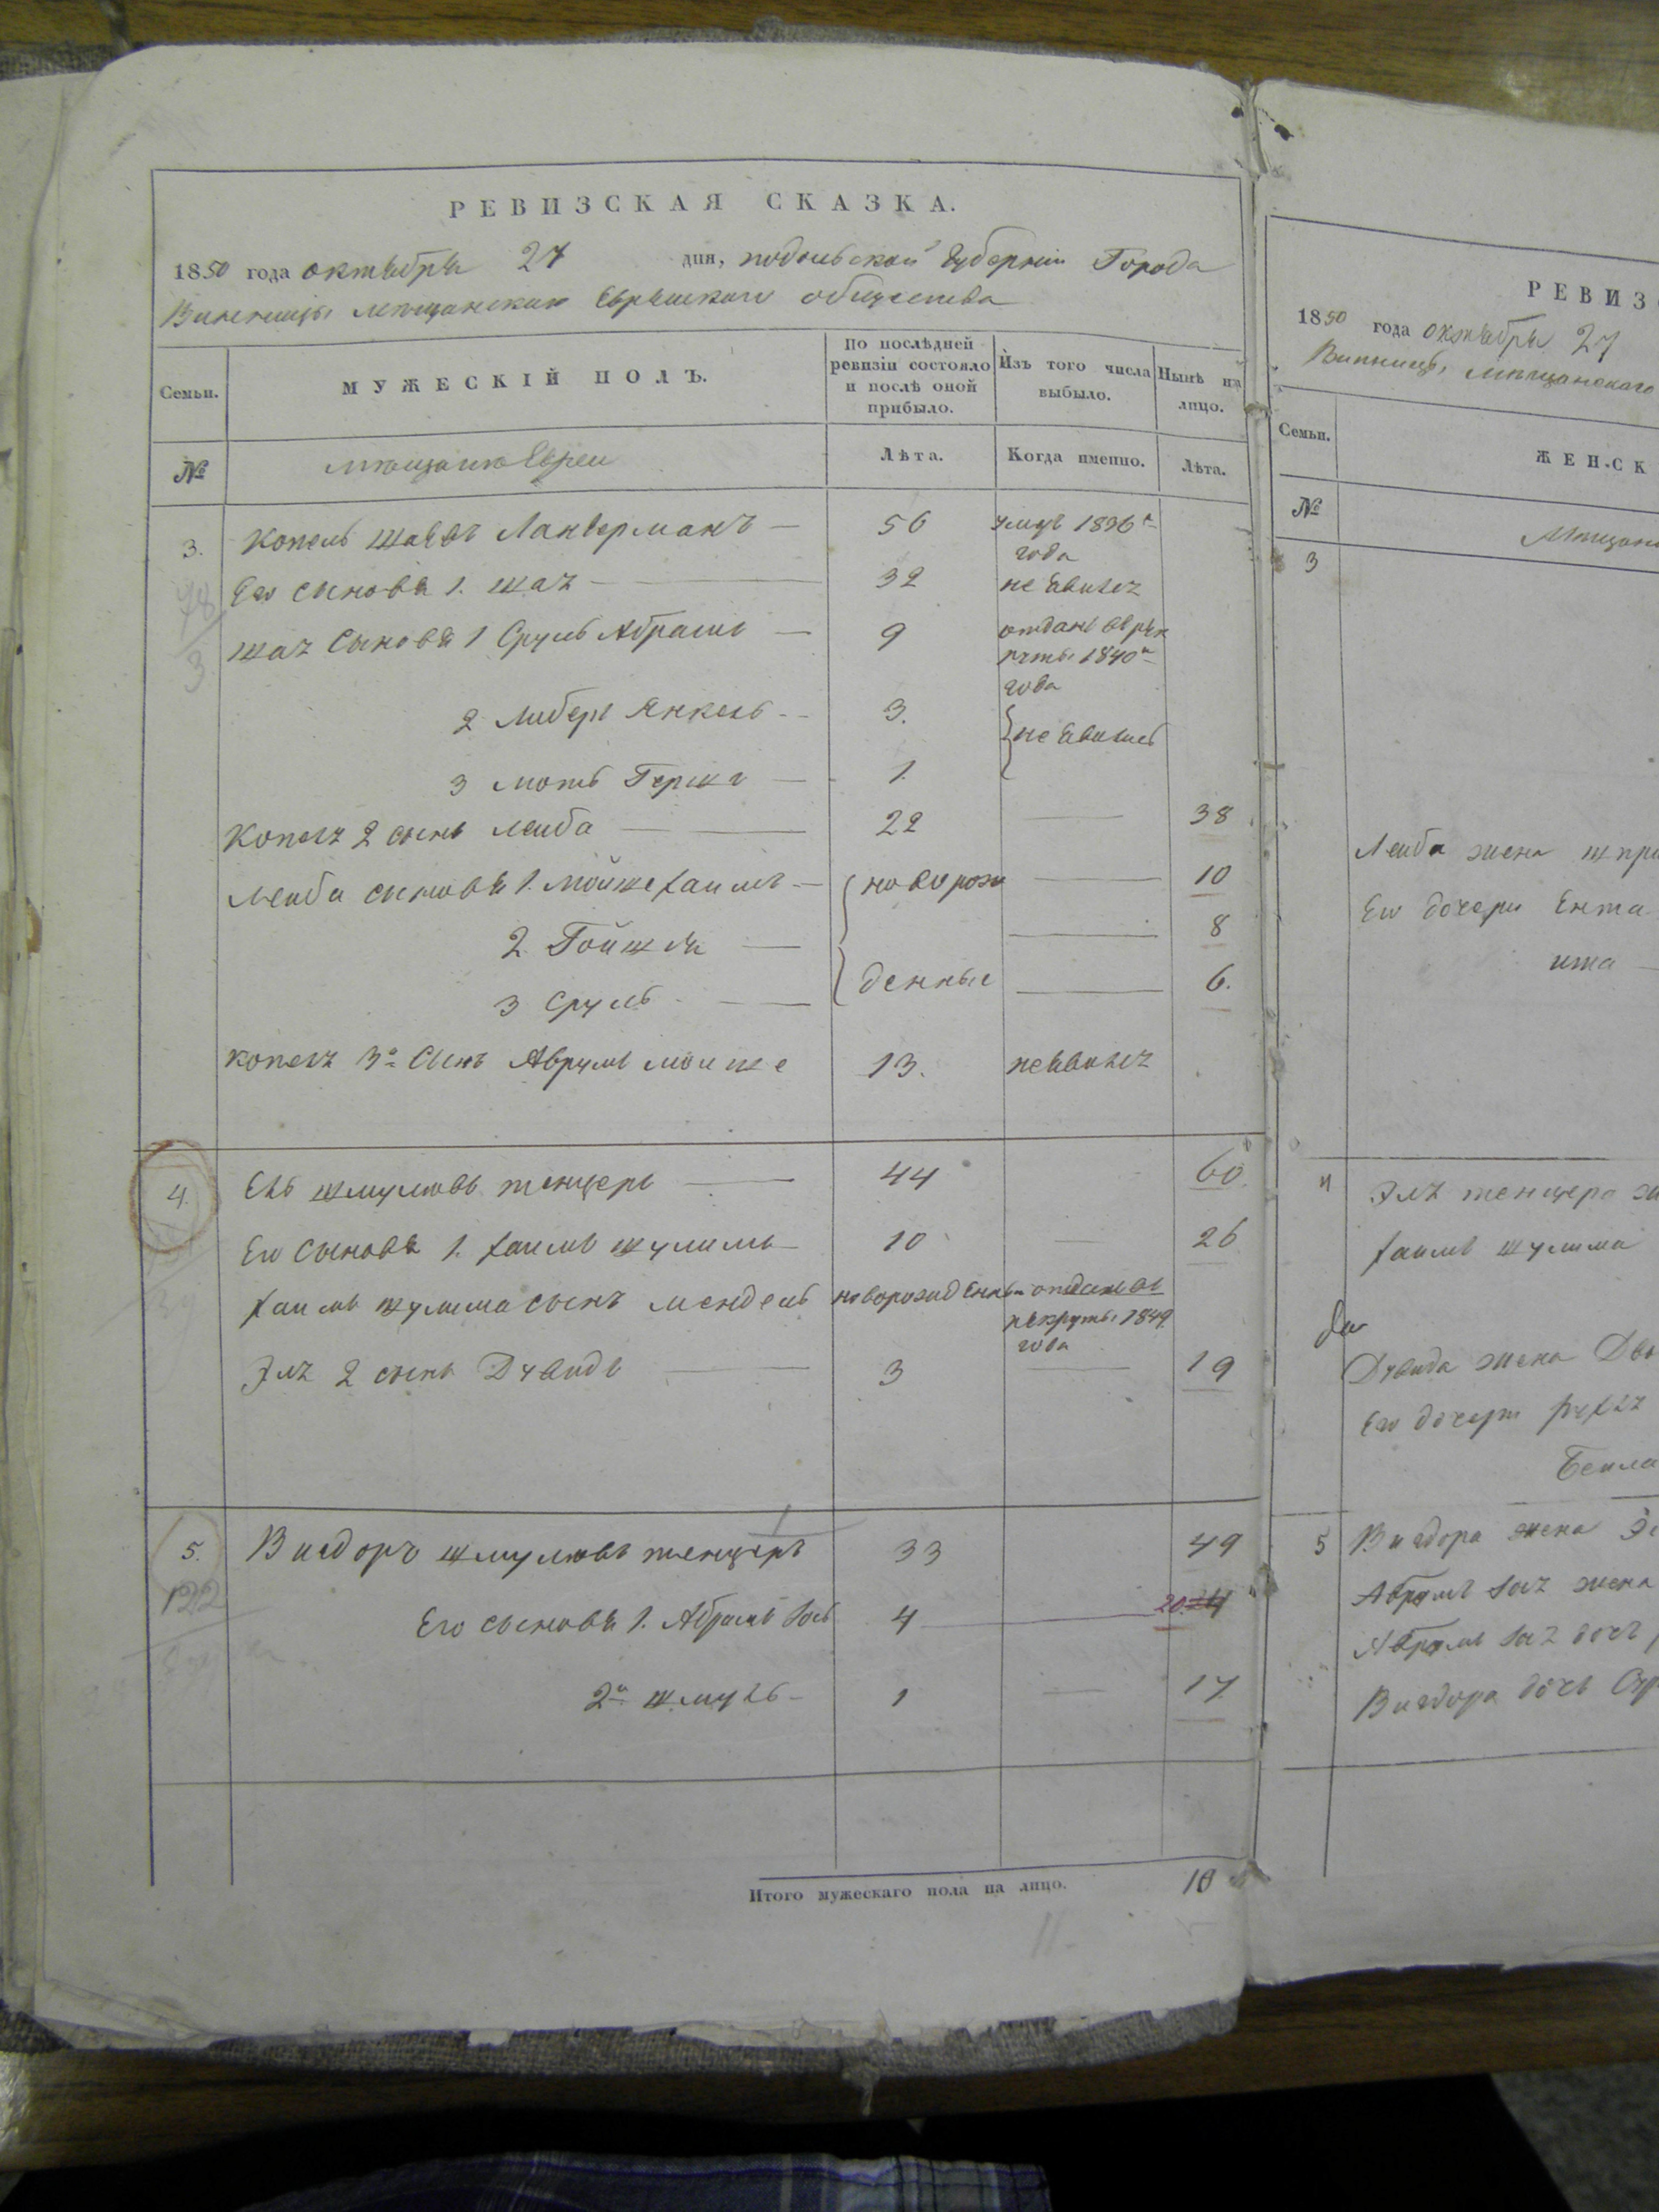 РЕВИЗСКАЯ СКАЗКА.
1850 года октября 27 дня, подольской Губернии Города
Винницы мѣщанскаго Еврейскаго общества
Семьи. МУЖЕСКІЙ ПОЛЪ. По послѣдней ревизіи состояло и послѣ оной прибыло. Изъ того числа выбыло. Нынѣ на лицо.
№ мѣщане Евреи Лѣта. Когда именно. Лѣта.
3. Копель Ланверманъ — 56 1836 года
Его сыновя 1. шаѣ — 32 не явилсѣ
шаѣ Сыновя 1 Сруль Абрамъ — 9 отданъ 1840 года
2 Либеръ Янкель — 3.
3 моть Гершъ — 1. } не явились
Копелѣ 2 сынъ леиба — 22 — 38
леиба сыновя 1. мойше хаимъ — новорож — 10
2. — 8
3 Сруль — денные — 6.
копелѣ 3й Сынъ Аврумъ моише 13. неявилсѣ
4. Ель шмулювъ тенцеръ — 44 60.
Его сыновя 1. хаимъ шулимъ — 10 — 26
хаимъ шулима сынъ мендель новорожденный отданъ въ рекруты 1849 года
Элѣ 2 сынъ Дувидъ — 3 — 19
5. Вигдоръ шмулювъ тенцеръ 33 49
122
Его сыновя 1. Абрамъ 4 — 20. 24
2й шмуль — 1 — 17.
Итого мужескаго пола на лицо. 10
11.
РЕВИЗ
1850 года октября 27
Винницы, мѣщанскаго
Семьи. ЖЕНСК
№ Мѣщан
3
Леиба жена
Его дочери Ента
4 Элѣ тенцера
хаимъ шулима
Дувида жена
Его дочери
Беила
5 Вигдора жена
Абрумъ жена
Абрумъ дочь
Вигдора дочь